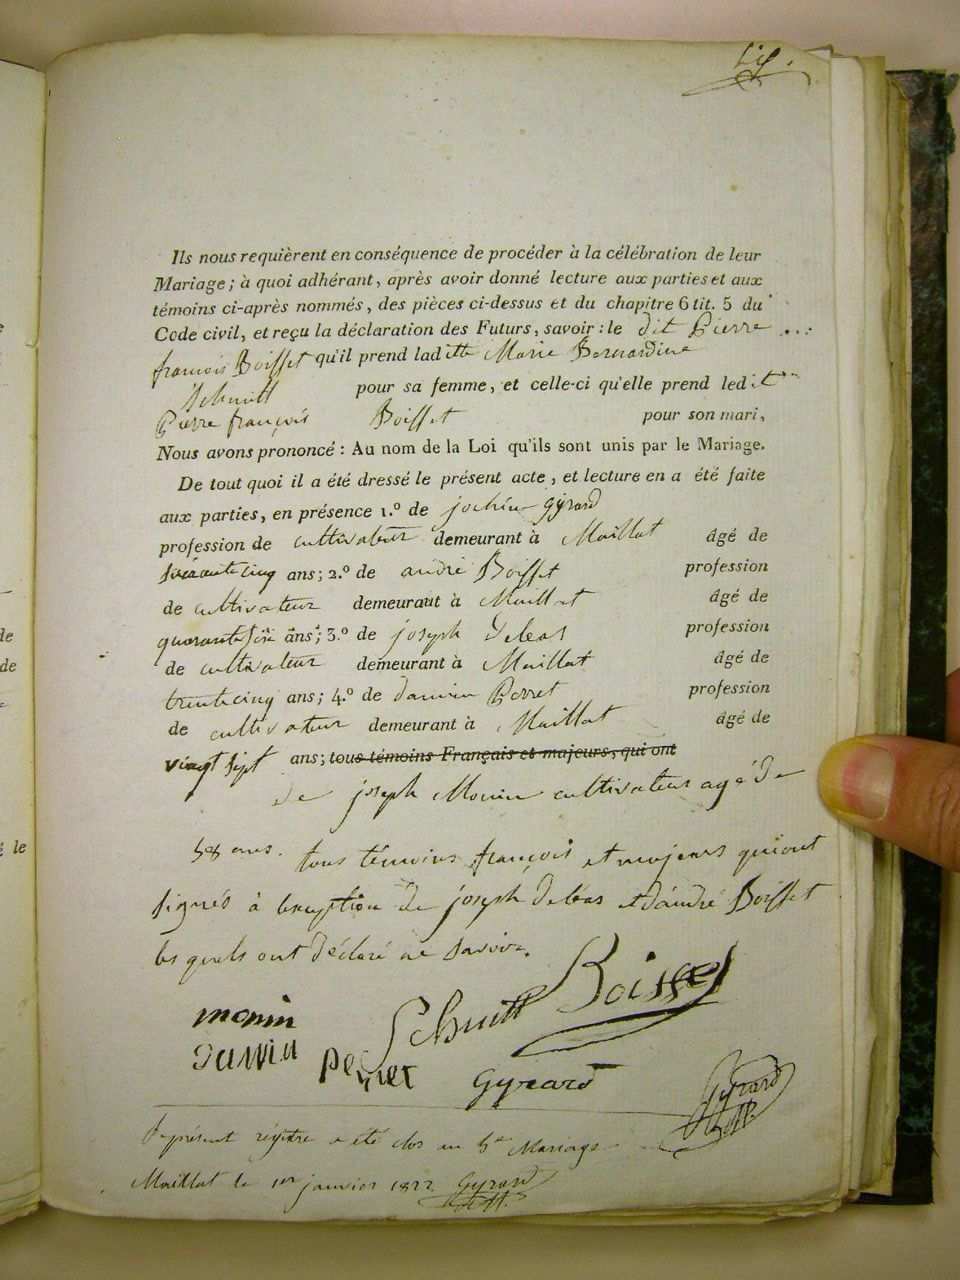 Ils nous requièrent en conséquence de procéder à la célébration de leur
Mariage; à quoi adhérant, après avoir donné lecture aux parties et aux
témoins ci-après nommés, des pièces ci-dessus et du chapitre 6 tit. 5 du
Code civil, et reçu la déclaration des Futurs, savoir: le dit Pierre
françois Boisset qu'il prend laditte Marie Bernardine
Schmitt pour sa femme, et celle-ci qu'elle prend ledit
Pierre françois Boisset pour son mari,
Nous avons prononcé: Au nom de la Loi qu'ils sont unis par le Mariage.
De tout quoi il a été dressé le présent acte, et lecture en a été faite
aux parties, en présence 1.º de jochin gyrard
profession de cultivateur demeurant à Maillat âgé de
soixante cinq ans; 2.º de andré Boisset profession
de cultivateur demeurant à Maillat âgé de
quarante six ans; 3.º de joseph Deleas profession
de cultivateur demeurant à Maillat âgé de
trente cinq ans; 4.º de damien Perret profession
de cultivateur demeurant à Maillat âgé de
vingt sept ans; tous témoins Français et majeurs, qui ont
De joseph Monin cultivateur agé de
58 ans. tous témoins françois et majeurs qui ont
signés à l'exception de joseph Deléas et d'andré Boisset
lesquels ont déclaré ne savoir.
monin Schmitt Boisset
Damien Perret Gyrard
Gyrard
le présent régitre a été clos au 5e Mariage
Maillat le 1er janvier 1822 Gyrard